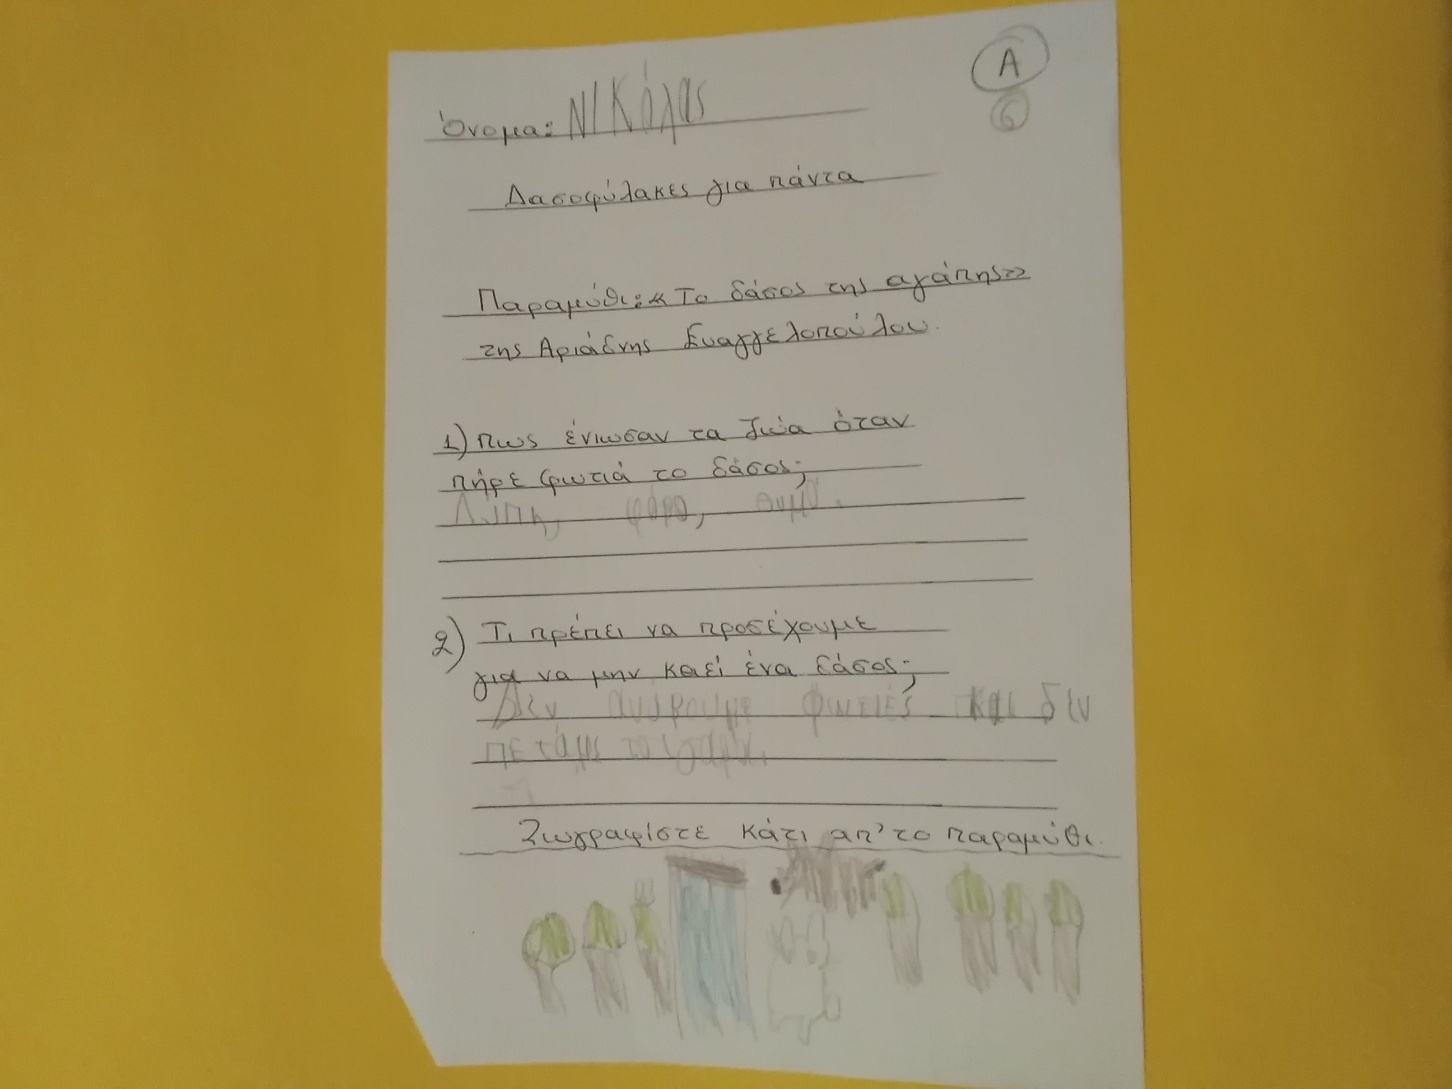 Α
6
Όνομα: ΝΙΚόλας
Δασοφύλακες για πάντα
Παραμύθι: «Το δάσος της αγάπης»
της Αριάδνης Ευαγγελοπούλου.
1) πως ένιωσαν τα ζώα όταν
πήρε φωτιά το δάσος;
Λύπη, φόβο, θυμό.
2) Τι πρέπει να προσέχουμε
για να μην καεί ένα δάσος;
Δεν ανάβουμε φωτιές και δεν
πετάμε
Ζωγραφίστε κάτι απ' το παραμύθι.